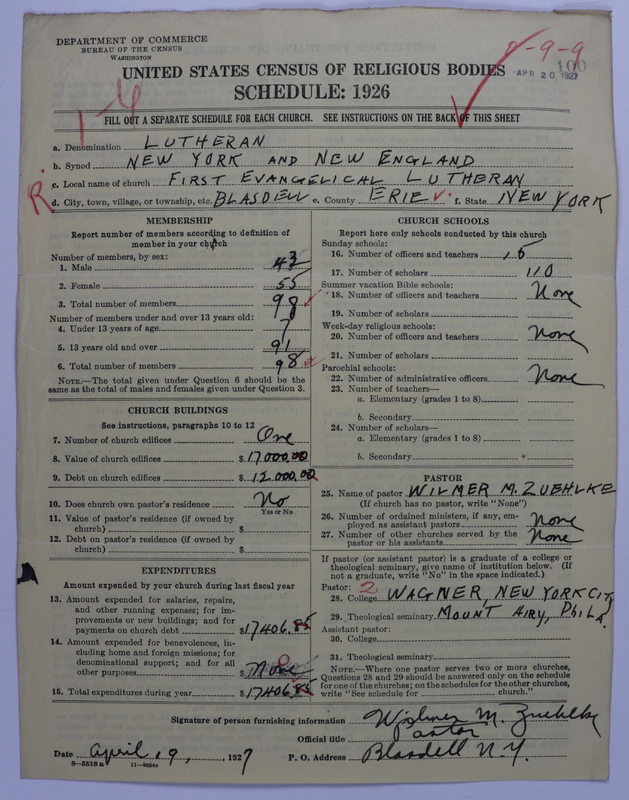 DEPARTMENT OF COMMERCE
BUREAU OF THE CENSUS
WASHINGTON
9-9
100
APR 20 1927
UNITED STATES CENSUS OF RELIGIOUS BODIES
SCHEDULE: 1926
1-4
FILL OUT A SEPARATE SCHEDULE FOR EACH CHURCH. SEE INSTRUCTIONS ON THE BACK OF THIS SHEET
a. Denomination LUTHERAN
b. Synod NEW YORK AND NEW ENGLAND
c. Local name of church FIRST EVANGELICAL LUTHERAN
R.
d. City, town, village, or township, etc. BLASDELL e. County ERIE f. State NEW YORK
MEMBERSHIP
Report number of members according to definition of
member in your church
Number of members, by sex:
1. Male 43
2. Female 55
3. Total number of members 98
Number of members under and over 13 years old:
4. Under 13 years of age 7
5. 13 years old and over 91
6. Total number of members 98
NOTE.—The total given under Question 6 should be the
same as the total of males and females given under Question 3.
CHURCH BUILDINGS
See instructions, paragraphs 10 to 12
7. Number of church edifices One
8. Value of church edifices $17000.00
9. Debt on church edifices $12.000.00
10. Does church own pastor's residence No
Yes or No
11. Value of pastor's residence (if owned by
church) $
12. Debt on pastor's residence (if owned by
church) $
EXPENDITURES
Amount expended by your church during last fiscal year
13. Amount expended for salaries, repairs,
and other running expenses; for im-
provements or new buildings; and for
payments on church debt $17406.85
14. Amount expended for benevolences, in-
cluding home and foreign missions; for
denominational support; and for all
other purposes None
15. Total expenditures during year $17406.85
CHURCH SCHOOLS
Report here only schools conducted by this church
Sunday schools:
16. Number of officers and teachers 15
17. Number of scholars 110
Summer vacation Bible schools:
18. Number of officers and teachers None
19. Number of scholars
Week-day religious schools:
20. Number of officers and teachers None
21. Number of scholars
Parochial schools:
22. Number of administrative officers None
23. Number of teachers—
a. Elementary (grades 1 to 8)
b. Secondary
24. Number of scholars—
a. Elementary (grades 1 to 8)
b. Secondary
PASTOR
25. Name of pastor WILMER M. ZUEHLKE
(If church has no pastor, write "None")
26. Number of ordained ministers, if any, em-
ployed as assistant pastors None
27. Number of other churches served by the
pastor or his assistants None
If pastor (or assistant pastor) is a graduate of a college or
theological seminary, give name of institution below. (If
not a graduate, write "No" in the space indicated.)
Pastor: 2
28. College WAGNER, NEW YORK CITY
29. Theological seminary MOUNT AIRY, PHILA.
Assistant pastor:
30. College
31. Theological seminary
NOTE.—Where one pastor serves two or more churches,
Questions 28 and 29 should be answered only on the schedule
for one of the churches; on the schedules for the other churches,
write "See schedule for church."
Signature of person furnishing information Wilmer M. Zuehlke
Official title Pastor
Date April 19, 1927 P. O. Address Blasdell N.Y.
8—5318 a